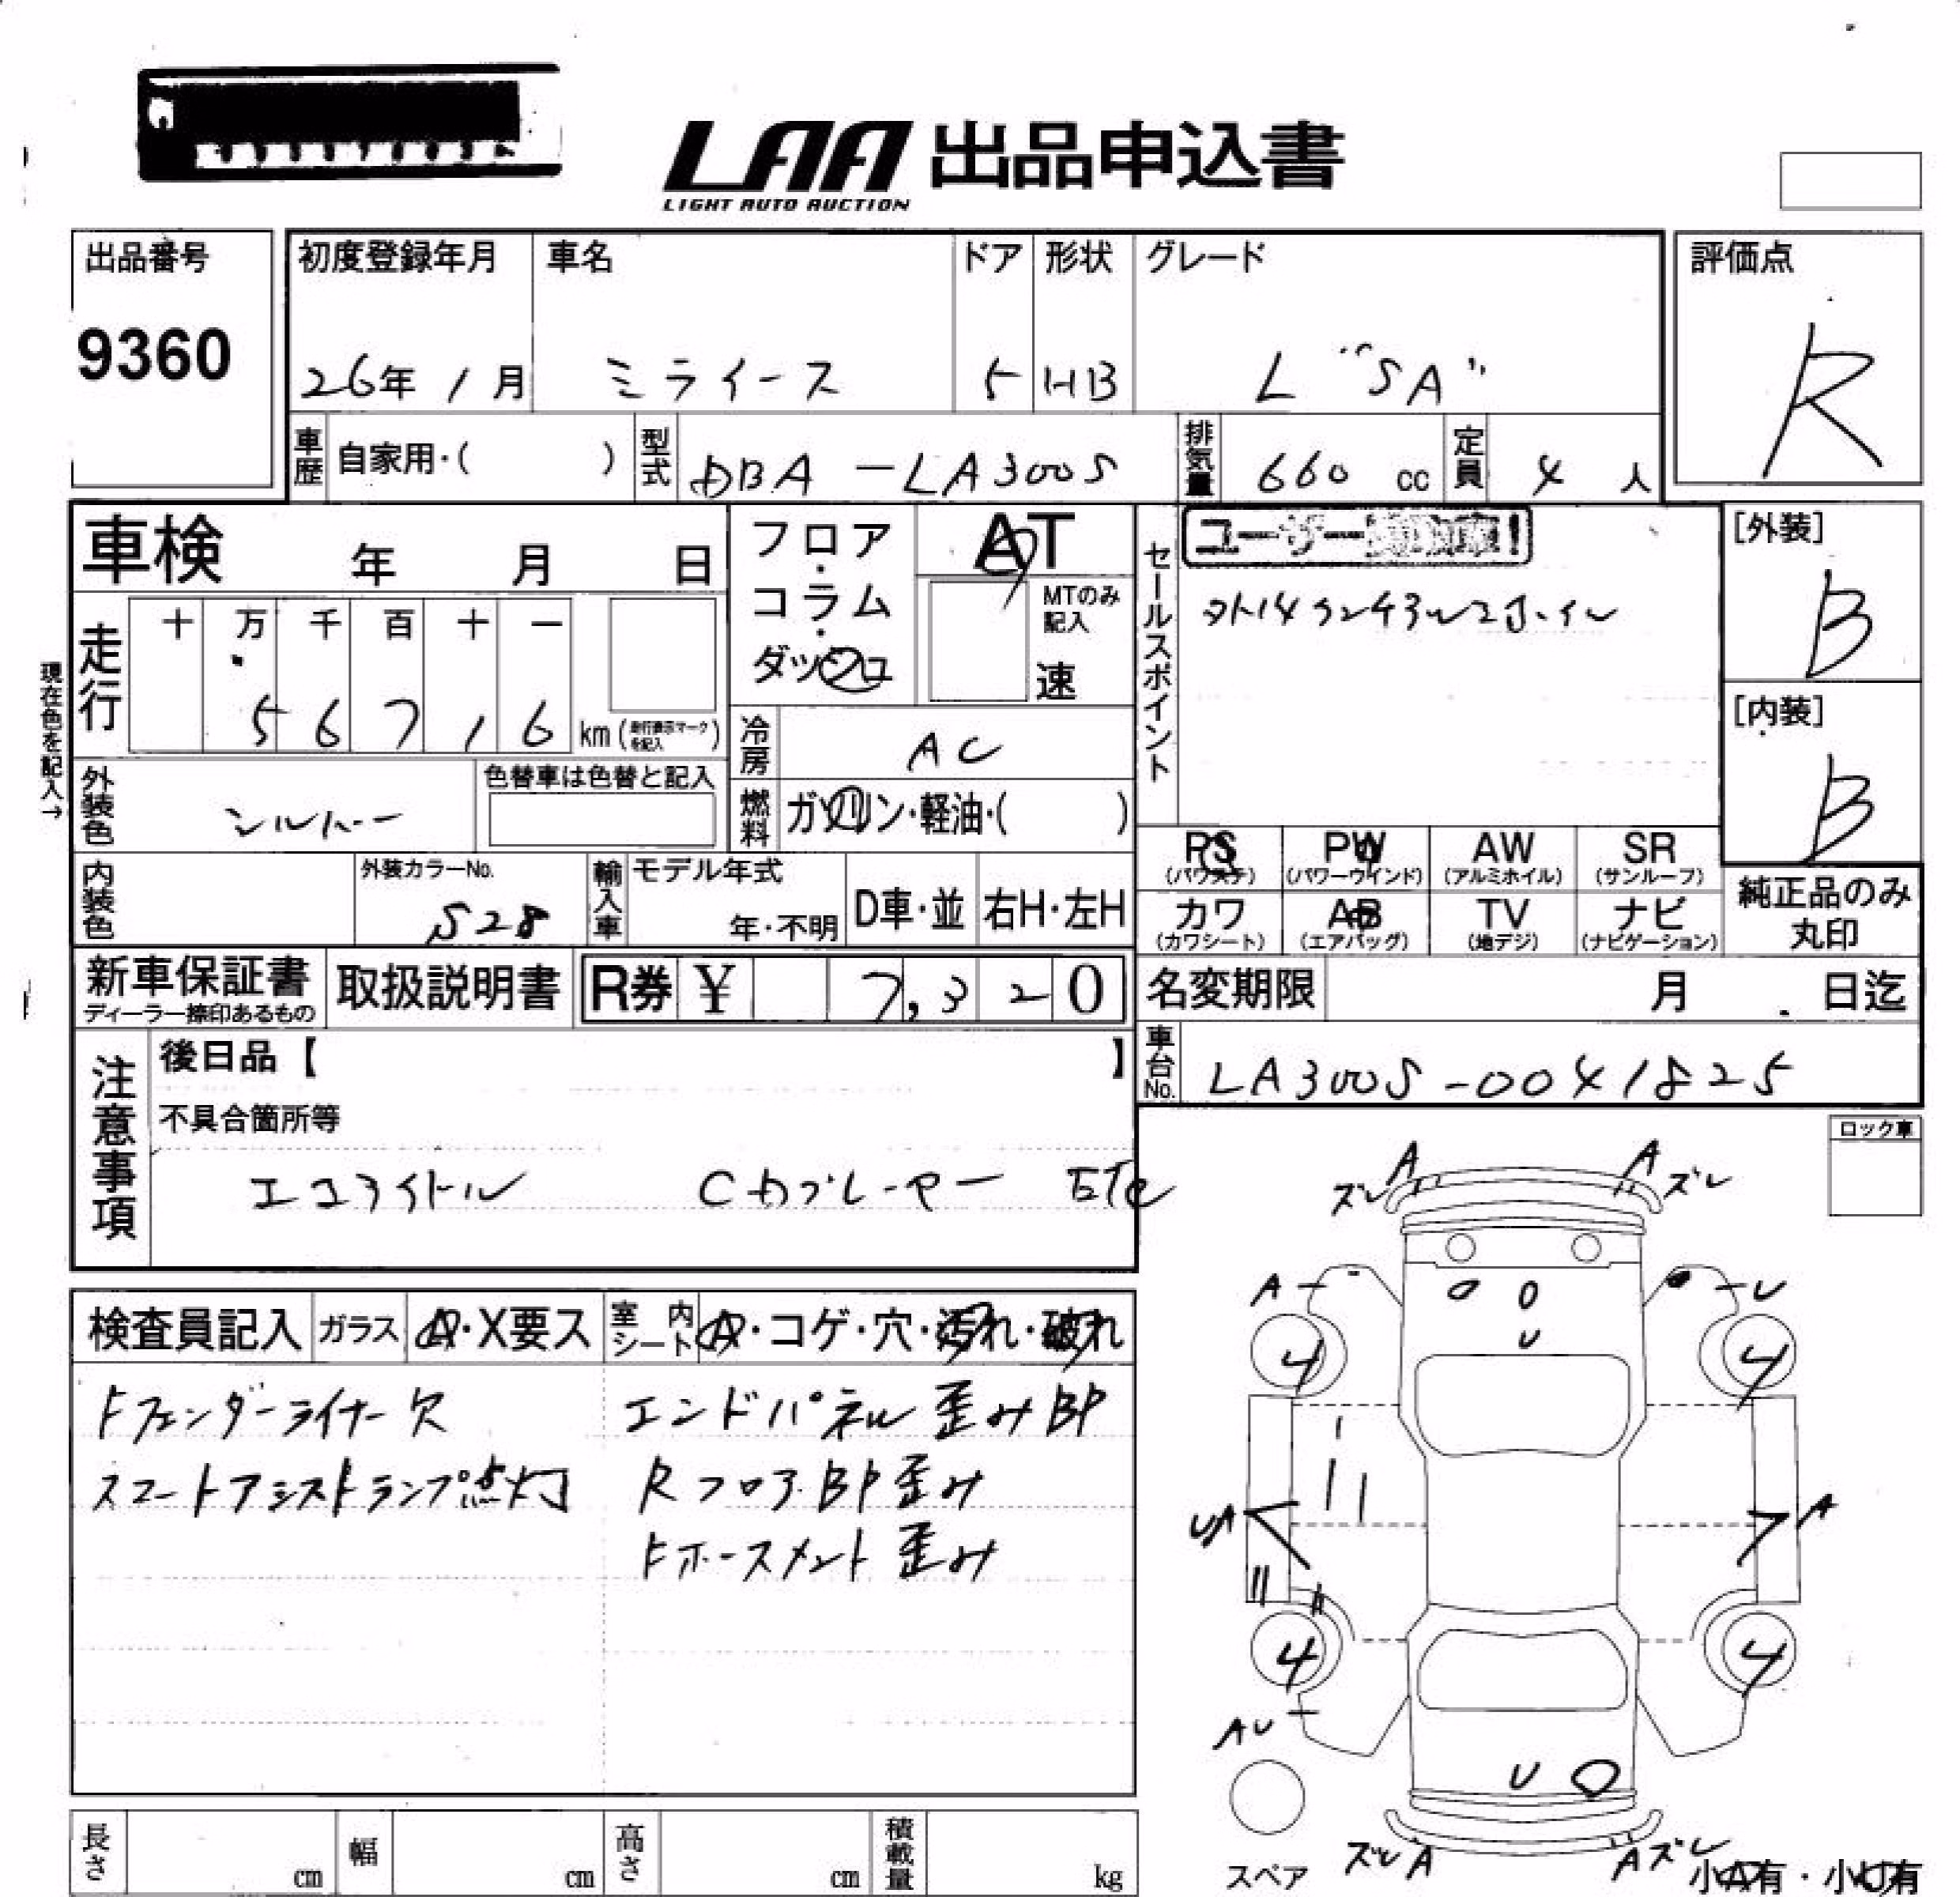 LAA 出品申込書
LIGHT AUTO AUCTION
出品番号
9360
初度登録年月
26年 1月
車名
ミライース
ドア
5
形状
HB
グレード
L "SA"
評価点
R
車歴 自家用・( )
型式 DBA-LA300S
排気量 660 cc
定員 4 人
車検 年 月 日
フロア・コラム・ダッシュ
AT
MTのみ記入
速
セールスポイント
ユーザー
[外装]
B
[内装]
B
現在色を記入→
走行
十 万 千 百 十 一
5 6 7 1 6 km (走行表示マークを記入)
冷房 AC
外装色 シルバー
色替車は色替と記入
燃料 ガソリン・軽油・( )
PS (パワステ)
PW (パワーウインド)
AW (アルミホイル)
SR (サンルーフ)
カワ (カワシート)
AB (エアバッグ)
TV (地デジ)
ナビ (ナビゲーション)
純正品のみ丸印
内装色
外装カラーNo.
S28
輸入車
モデル年式
年・不明
D車・並
右H・左H
新車保証書
ディーラー捺印あるもの
取扱説明書
R券 ¥ 7,320
名変期限 月 日迄
車台No. LA300S-0041825
注意事項
後日品【 】
不具合箇所等
エコアイドル Cカブレーヤー ETC
ロック車
検査員記入
ガラス A・X要ス
室内シート A・コゲ・穴・汚れ・破れ
Fフェンダーライナー欠
スマートアシストランプ点灯
エンドパネル歪みBP
RフロアBP歪み
Fホースメント歪み
A
ズレ
A
ズレ
A
U
U
4
4
UA
A
4
4
AU
U
ズレ A
A ズレ
スペア
小A有・小U有
長さ cm
幅 cm
高さ cm
積載量 kg